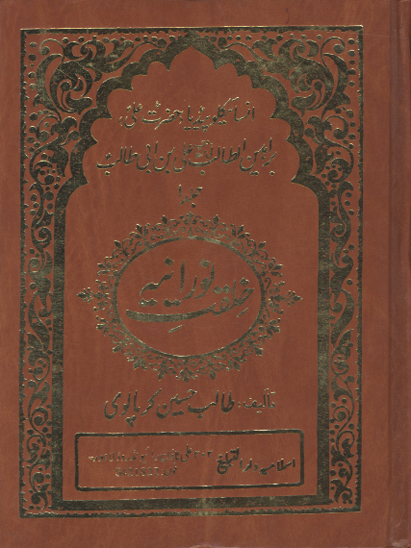 انسائیکلوپیڈیا حضرت علیؑ
براہین المطالب علی بن ابی طالب
جلد ۱
خلقت نورانیہ
تالیف: طالب حسین کرپالوی
اسلامیہ دار التبلیغ